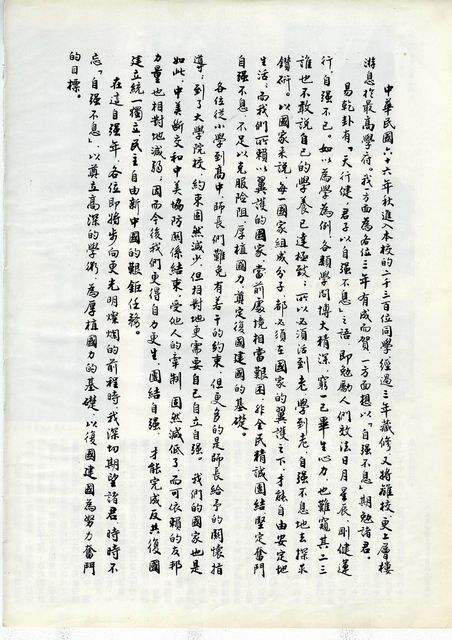 中華民國六十六年秋進入本校的二千三百位同學經過三年藏修又將離校更上層樓
游息於最高學府。我方面為各位三年有成而賀，一方面想以「自强不息」期勉諸君。
易乾卦有「天行健，君子以自强不息」之語，即勉勵人們效法日月星辰，剛健運
行自强不已。如以為學為例，各類學問博大精深，窮一己畢生心力，也難窺其二三
誰也不敢說自己的學養已達極致；所以必須活到老，學到老，自强不息地去探求
鑽研。以國家來說，每一國家組成分子都必須在國家的翼護之下，才能自由安定地
生活；而我們所賴以翼護的國家，當前處境相當艱困，非全民精誠團結，堅定奮鬥
自强不息，不足以克服險阻，厚植國力，奠定復國建國的基礎。
各位從小學到高中，師長們難免有若干的約束，但更多的是師長給予的關懷指
導；到了大學院校，約束固然減少，但相對地更需要自己自立自强。我們的國家也是
如此，中美斷交和中美協防關係結束，受他人的牽制，固然減低了，而可依賴的友邦
力量也相對地減弱；因而今後我們更得自力更生，團結自强，才能完成反共復國
建立統一獨立民主自由新中國的艱鉅任務。
在這自强年，各位即將步向更光明燦爛的前程時，我深切期望諸君，時時不
忘「自强不息」，以奠立高深的學術，為厚植國力的基礎，以復國建國為努力奮鬥
的目標。